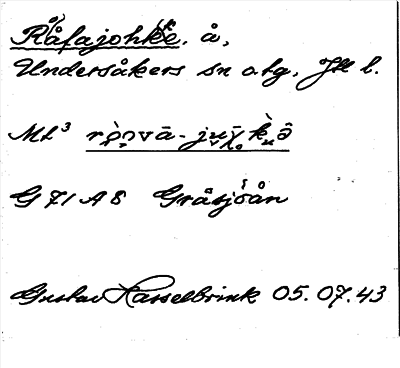 Råfajohke. å,
Undersåkers sn o. tg, Jtl l.
Mt³ rò̭n̯vā - ju̯χ̄k̀ə̂
G 71 A 8 Gråsjöån
Gustav Hasselbrink 05.07.43